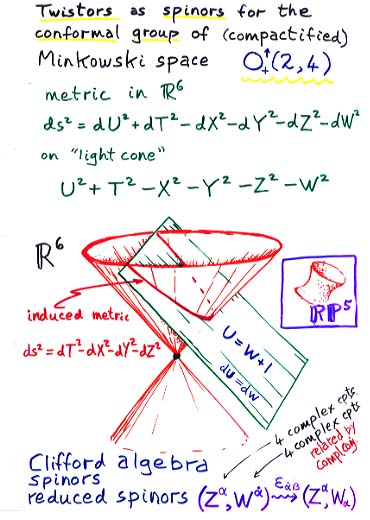 Twistors as spinors for the
conformal group of (compactified)
Minkowski space O₊↑(2,4)
metric in ℝ⁶
ds² = dU² + dT² − dX² − dY² − dZ² − dW²
on "light cone"
U² + T² − X² − Y² − Z² − W²
ℝ⁶
induced metric
ds² = dT² − dX² − dY² − dZ²
U = W + 1
dU = dW
RP⁵
4 complex cpts.
4 complex cpts
related by
Clifford algebra
spinors
reduced spinors (Z^α, W^α̇) ⇝ (Z^α, W_α)